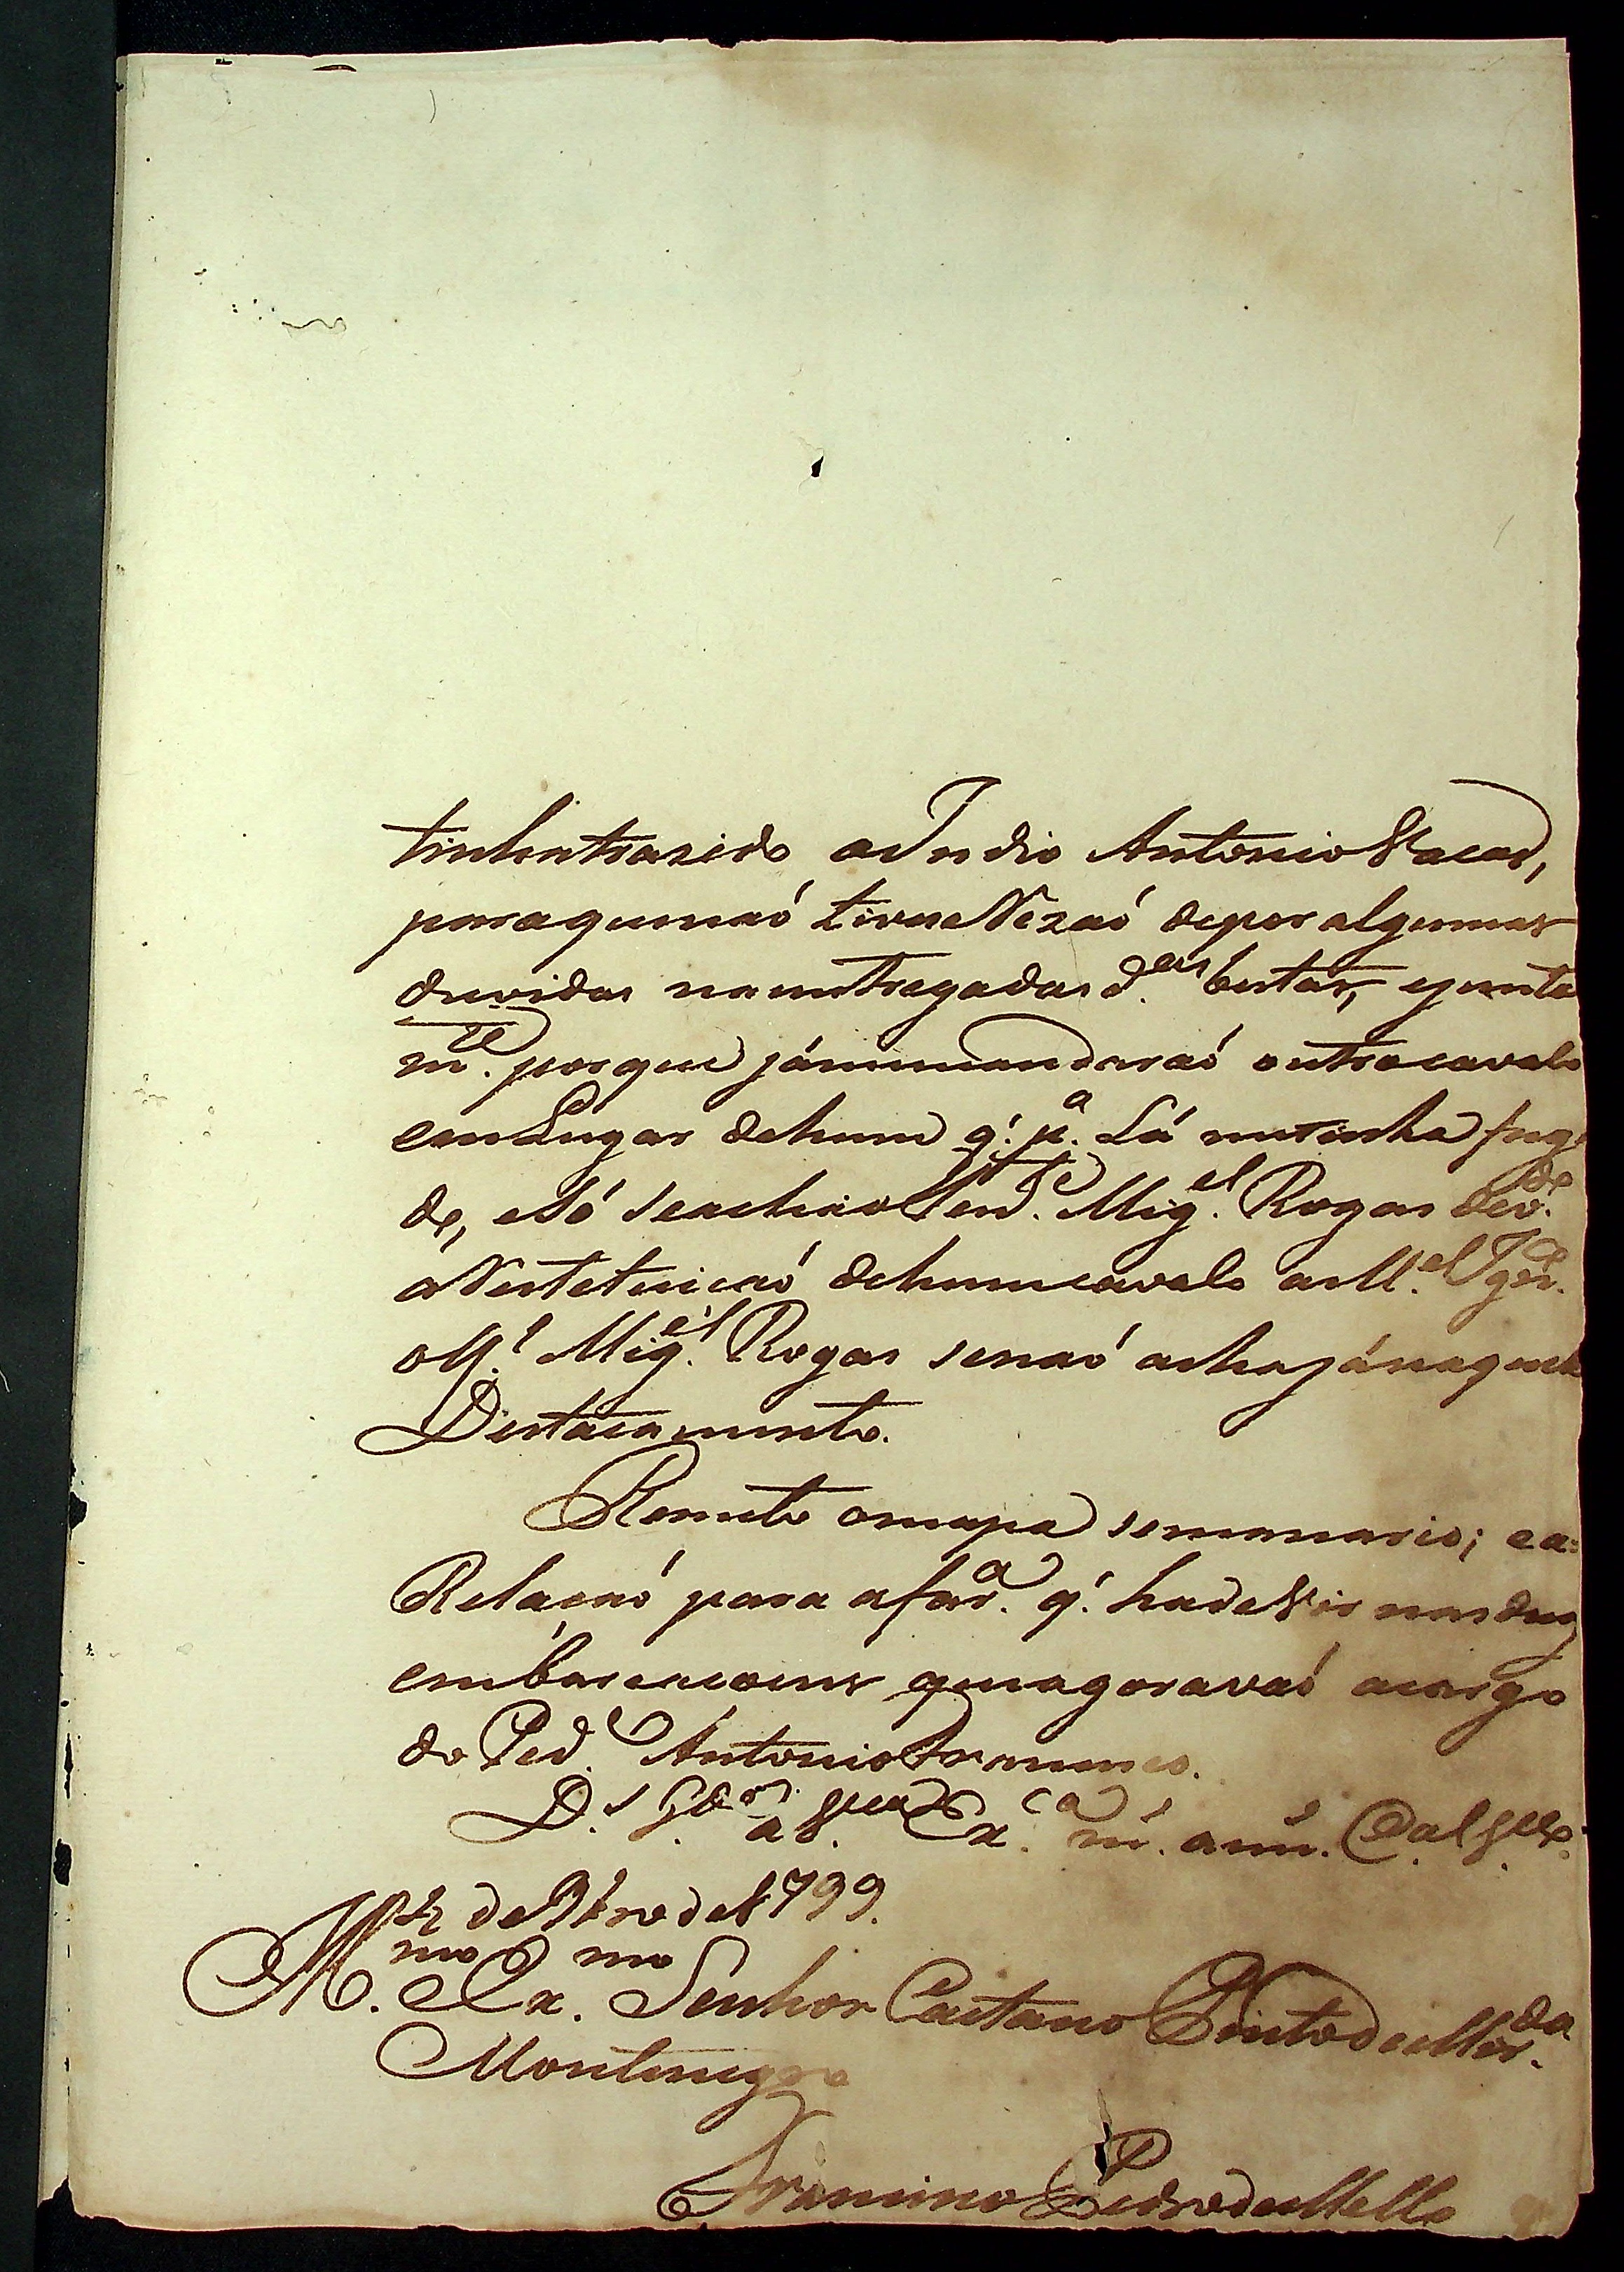 tinha trazido o Indio Antonio Vacas,
para que naó tivese Rezaó de por algumas
duvidas na entrega das d.as bestas, e junta
m.te porque já me mandaraó outro cavalo
em Lugar de hum q.' p.a Lá me tinha fugi
do, e Só se acha o Ped.e Mig.el Rogas dev.do
a Restetuicaó de hum cavalo a M.el
o q.l Mig.el Rogas senaó acha já naquele
Destacamento.
Remeto o mapa semanario; e a
Relacaó para a far.a q.' hade Vir nas duas
embarcacoens que agora vaó a cargo
do Ped.e Antonio
D.s G.de a V. Ex.ca m.s ann.s
de 1799.
Ill.mo e Ex.mo Senhor Caetano Pinto de Mir.da
Montenegro
Francisco Pedro de Mello